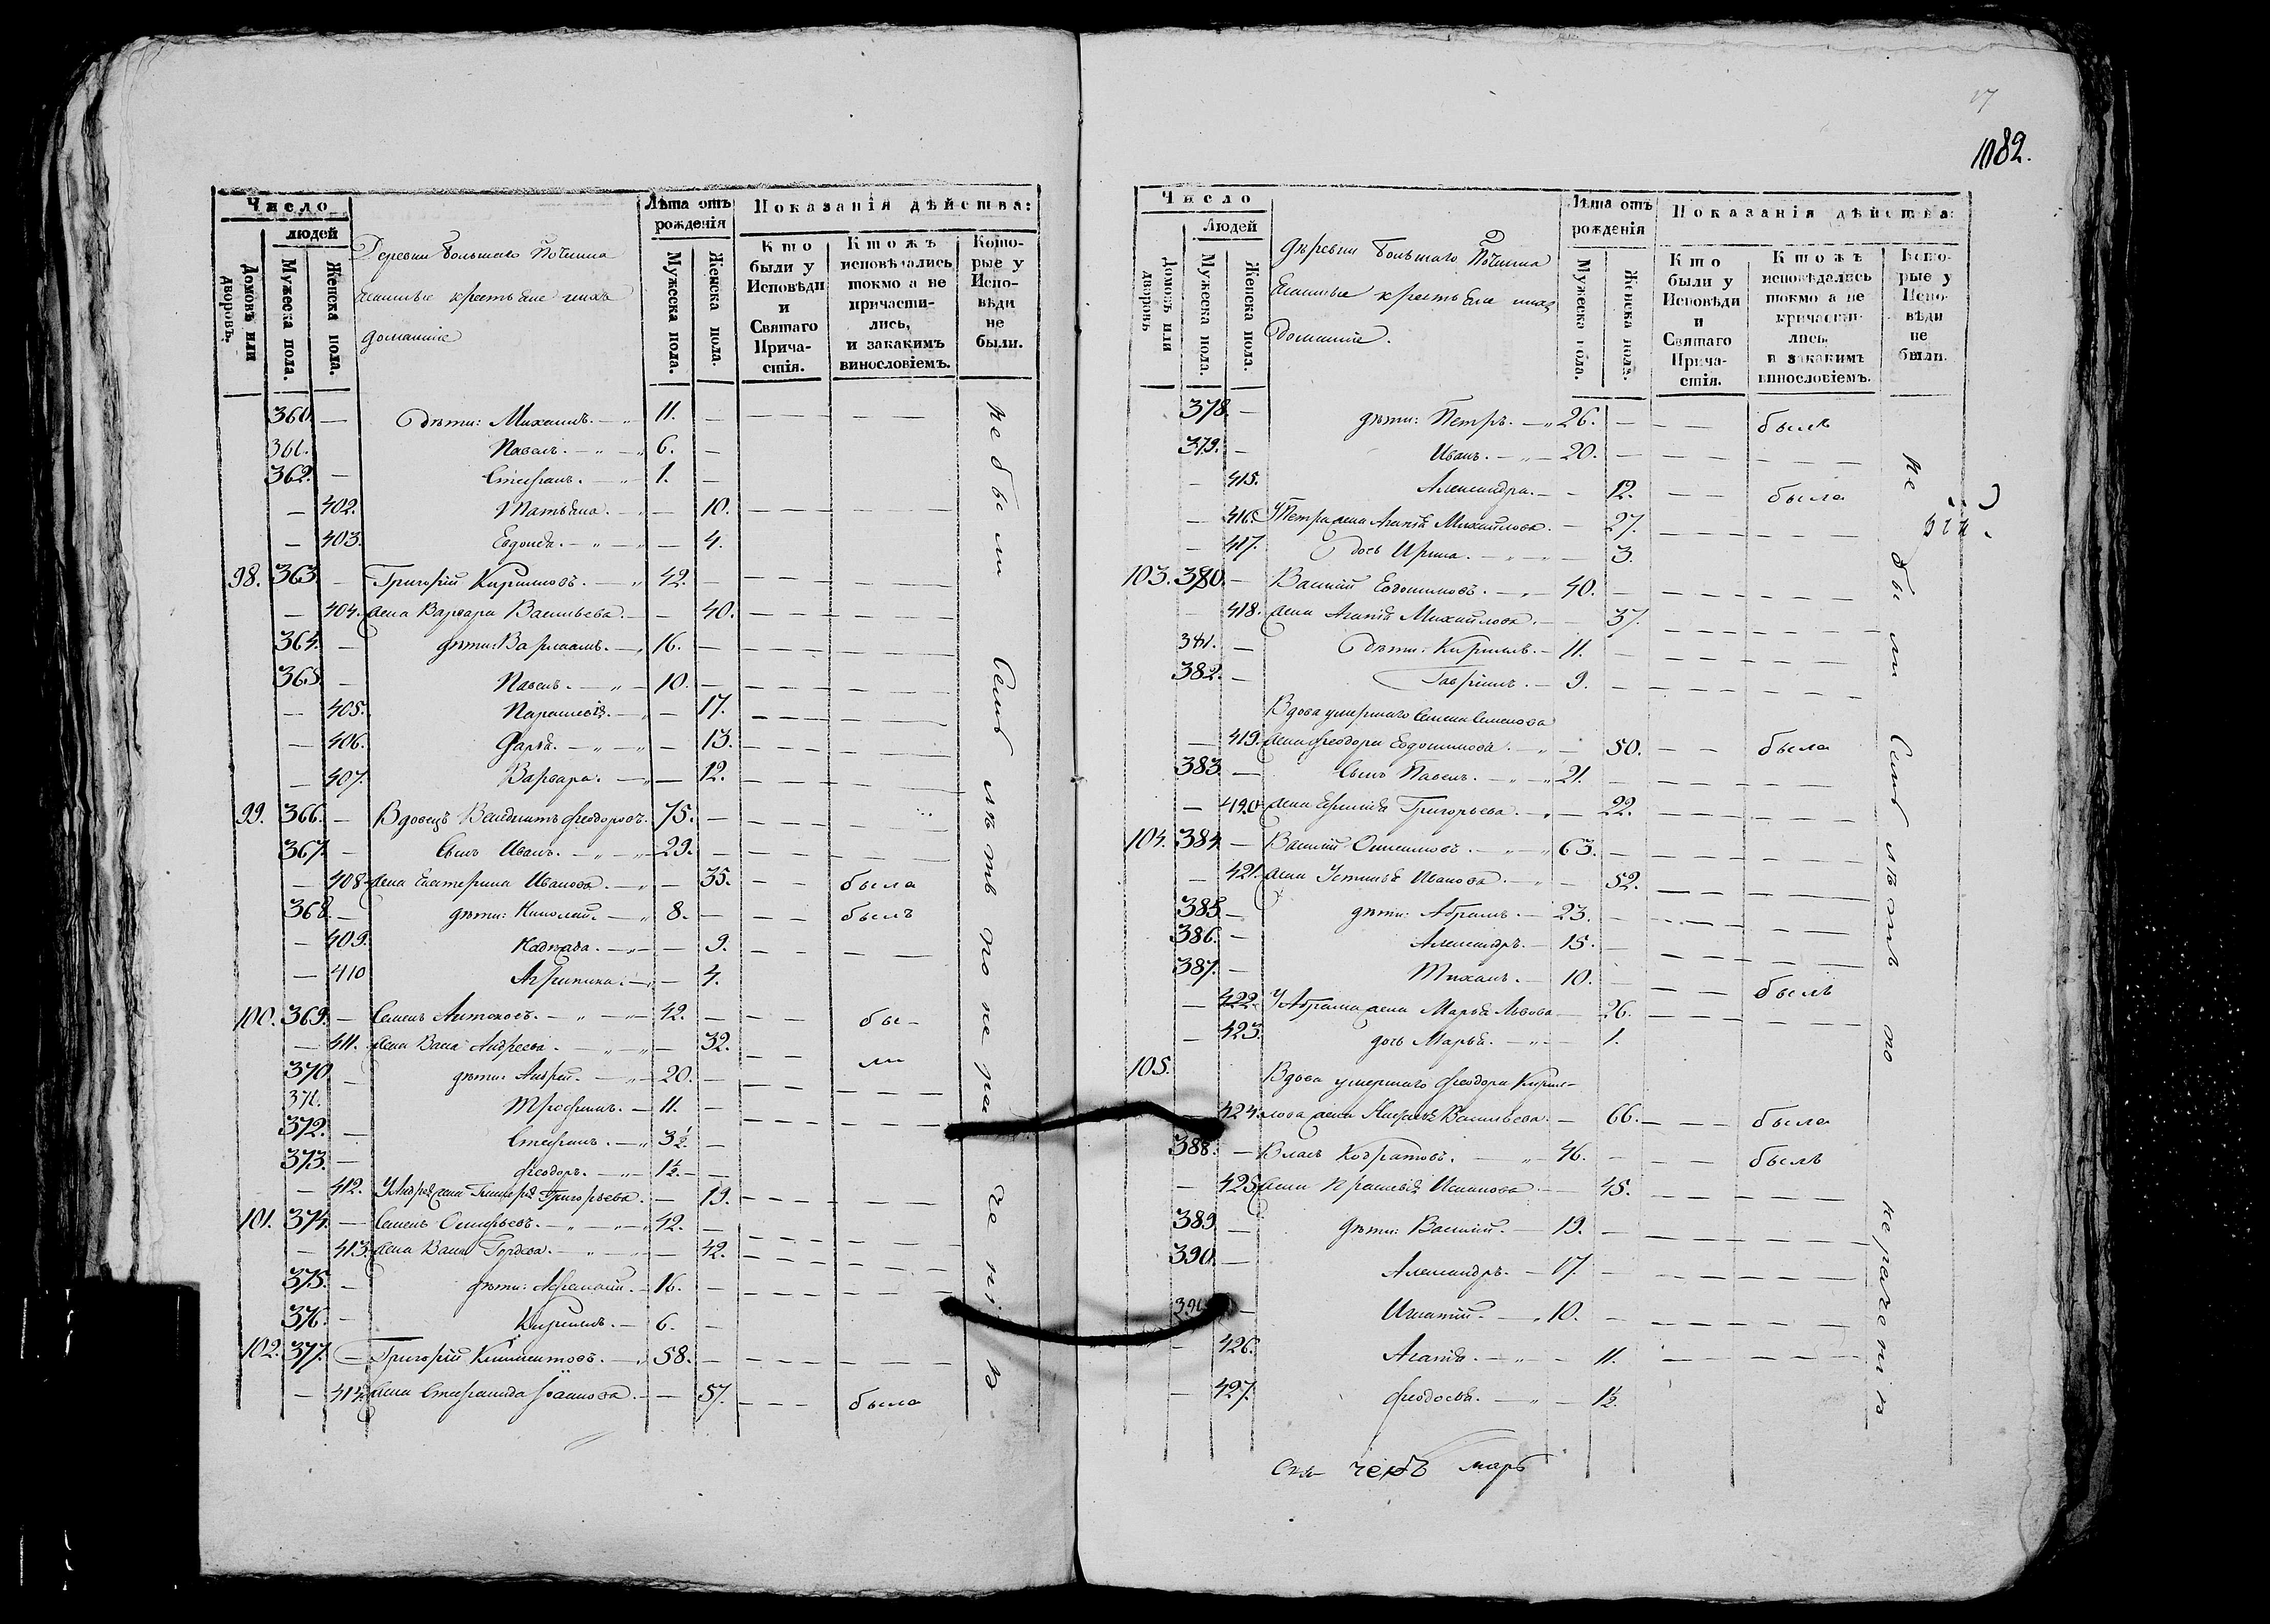 Число
людей
Домовъ или дворовъ.
Мужеска пола.
Женска пола.
Деревни Большаго Починка
крестьяне ихъ
домашніе
Лѣта отъ рожденія
Мужеска пола.
Женска пола.
Показанія дѣйства:
Кто были у Исповѣди и Святаго Причастія.
Ктожъ исповѣдались токмо а не причастились, и закакимъ винословіемъ.
Которые у Исповѣди не были.
360. — дѣти: Михаилъ. — 11. —
361. Павелъ. — 6. —
362. — Стефанъ. — 1. —
— 402. Татьяна. — — 10.
— 403. Евдокія. — — 4.
98. 363. — Григорій Кириловъ. — 42. —
— 404. жена Варвара Васильева. — — 40.
364. — дѣти: Варлаамъ. — 16. —
365. — Павелъ. — 10. —
— 405. Парасковія. — — 17.
— 406. Дарья. — — 13.
— 407. Варвара. — — 12.
99. 366. — Вдовецъ Венедиктъ Феодоровъ. 75. —
367. — сынъ Иванъ. — 29. —
— 408. жена Екатерина Иванова. — — 35. — — была
368. — дѣти: Николай. — 8. — — — былъ
— 409. — — 9.
— 410 Агрипина. — — 4.
100. 369. — Семенъ Антоновъ. — 42. — — — бы-
— 411. жена Васса Андреева. — — 32. — — ли
370 — дѣти: Андрей. — 20. —
371. Трофимъ. — 11. —
372. — Стефанъ. — 3½ —
373. — Феодоръ. — 1½ —
— 412. У Андрея жена Григорьева. — 19.
101. 374. — Семенъ — 42. —
— 413. жена Васса Гордѣева. — — 42.
375. — дѣти: Афанасій. — 16. —
376. — Кирилъ. — 6. —
102. 377. — Григорій Климентовъ. — 58. —
— 414. жена Стефанида Іоаннова. — — 57. — — была
не были Семь лѣтъ по нераченію
17
1082.
Число
Людей
Домовъ или дворовъ
Мужеска пола.
Женска пола.
Деревни Большаго Починка
крестьяне ихъ
домашніе.
Лѣта отъ рожденія
Мужеска пола.
Женска пола.
Показанія дѣйства:
Кто были у Исповѣди и Святаго Причастія.
Ктожъ исповѣдались токмо а не причастились, и закакимъ винословіемъ.
Которые у Исповѣди не были.
378. — дѣти: Петръ. — 26. — — — былъ
379. — Иванъ. — 20. —
— 415. Александра. — — 12. — — была
— 416. У Петра жена Агапія Михайлова. — 27.
— 417. дочь Ирина. — — 3.
103. 380. — Василій Евдокимовъ. — 40. —
418. жена Агапія Михайлова. — 37.
381. — дѣти: Кирилъ. — 11. —
382. — Гавріилъ. — 9. —
Вдова умершаго Семена Семенова
— 419. жена Феодора Евдокимова. — — 50. — — была
383. — сынъ Павелъ. — 21. —
— 420. жена Григорьева. — — 22.
104. 384. — Василій — 63. —
— 421. жена Устинья Иванова. — — 52.
385. — дѣти: Абрамъ. — 23. —
386. — Александръ. — 15. —
387. — Тихонъ. — 10. — — — былъ
— 422. У Абрама жена Марья Львова — 26.
— 423. дочь Марья. — — 1.
105. Вдова умершаго Феодора Кирил-
— 424. лова жена Васильева. — 66. — — была
388. — Власъ Кодратовъ. — 46. — — былъ
— 425 жена Прасковія — 45.
389. — дѣти: Василій. — 19. —
390. — Александръ. — 17. —
391. — Игнатій. — 10. —
— 426. Агапія. — — 11.
— 427. Феодосья. — — 1½.
не были Семь лѣтъ по нераченію